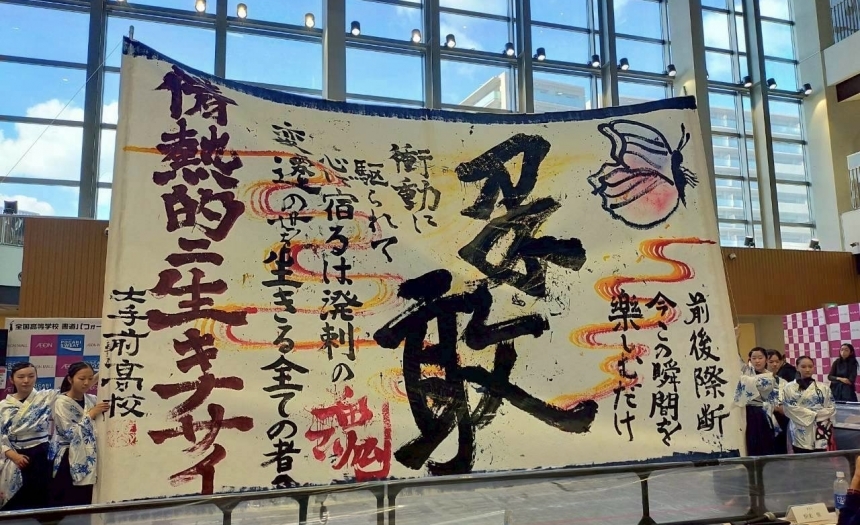 前後際断
今この瞬間を
楽しむだけ
敢
衝動に
駆られて
心に宿るは溌剌の
魂
変遷の世に生きる全ての者へ
情熱的ニ生キナサイ
大手前高校
全国高等学校 書道パフォー
AEON
POCARI SWEAT